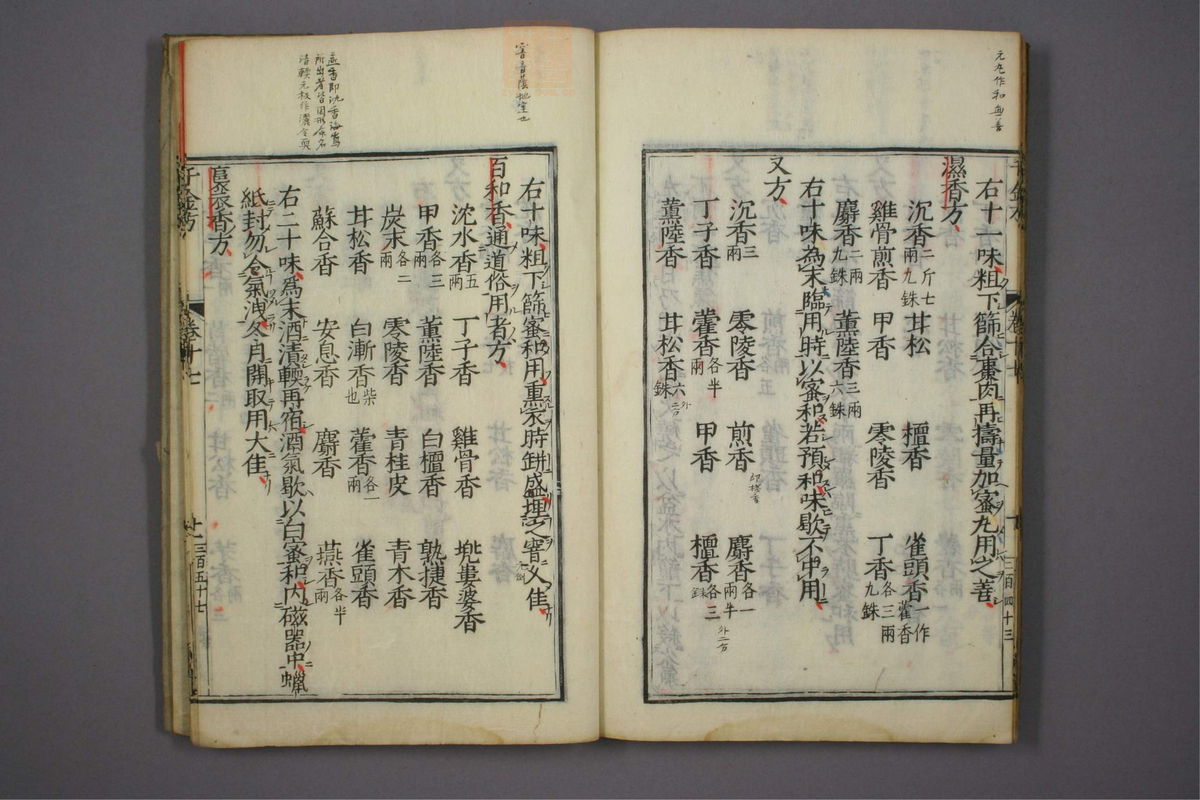 元丸作和無善
右十一味麤下篩合棗肉再擣量加蜜丸用之善
濕香方
沉香二斤七兩九銖 甘松 檀香 雀頭香一作藿香
雞骨煎香 甲香 零陵香 丁香各三兩九銖
麝香二兩九銖 薰陸香三兩六銖
右十味為末臨用時以蜜和若預和味歇不中用
又方
沉香三兩 零陵香 煎香 麝香各一兩半
丁子香 藿香各半兩 甲香 檀香各三銖
薰陸香 甘松香六銖
三百四十三
右十味粗下篩蜜和用熏衣時缾盛埋之久窨佳
百和香通道俗用者方
沈水香五兩 丁子香 雞骨香 兜婁婆香
甲香各三兩 薰陸香 白檀香 孰捷香
炭末各二兩 零陵香 青桂皮 青木香
甘松香 白漸香柴也 藿香各一兩 雀頭香
蘇合香 安息香 麝香 燕香各半兩
右二十味為末酒漬輭再宿酒氣歇以白蜜和內磁器中蠟
紙封勿令氣洩冬月開取用大佳
裛衣香方
千金方 卷十七
三百五十七